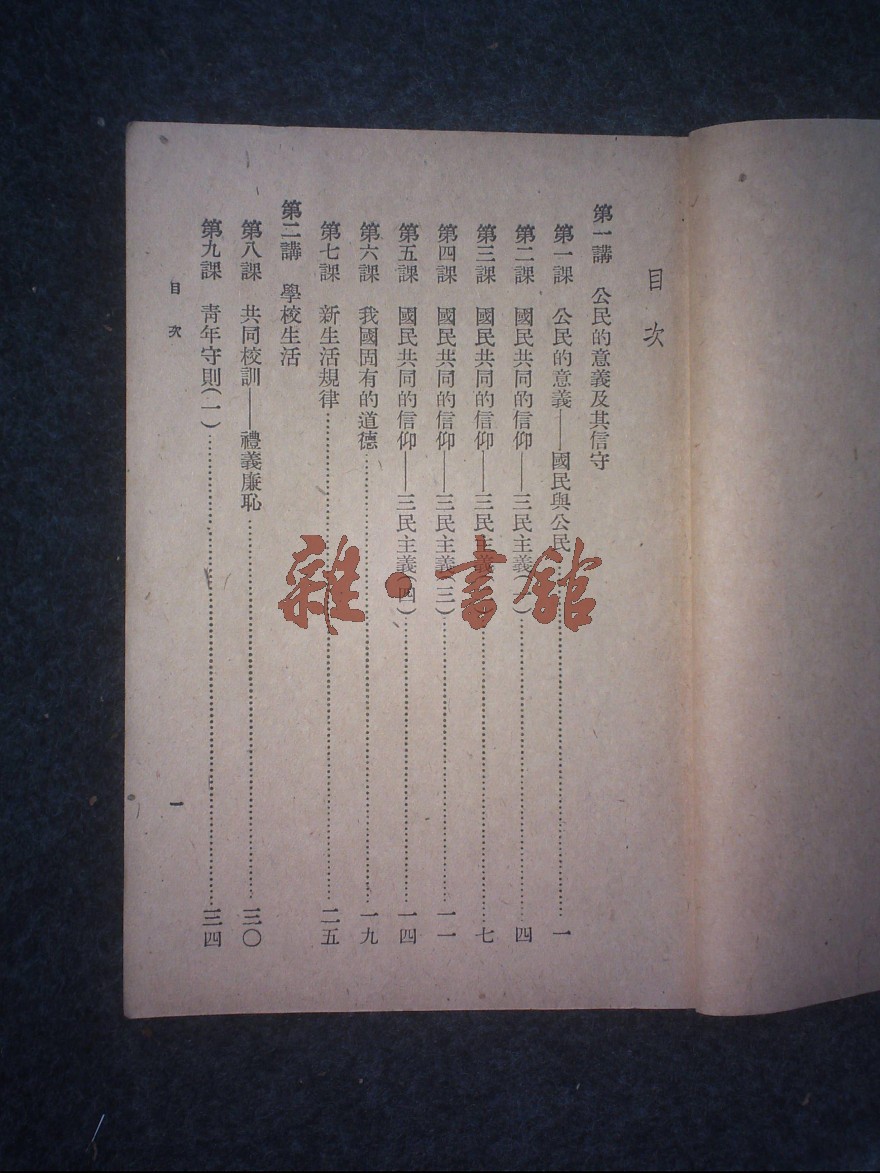 目次
第一講 公民的意義及其信守
第一課 公民的意義——國民與公民……一
第二課 國民共同的信仰——三民主義(一)……四
第三課 國民共同的信仰——三民主義……七
第四課 國民共同的信仰——三民主義(三)……一一
第五課 國民共同的信仰——三民主義(四)……一四
第六課 我國固有的道德……一九
第七課 新生活規律……二五
第二講 學校生活
第八課 共同校訓——禮義廉恥……三〇
第九課 青年守則(一)……三四
目次
一
雜·書館